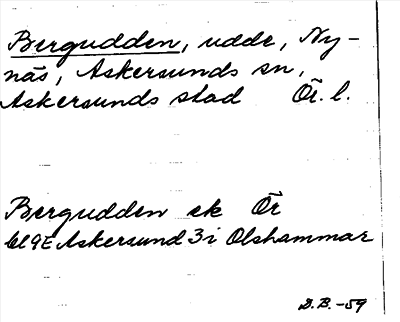 Bergudden, udde, Ny-
näs, Askersunds sn,
Askersunds stad Ör. l.
Bergudden ek Ör
bl 9E Askersund 3i Olshammar
D.B.-59